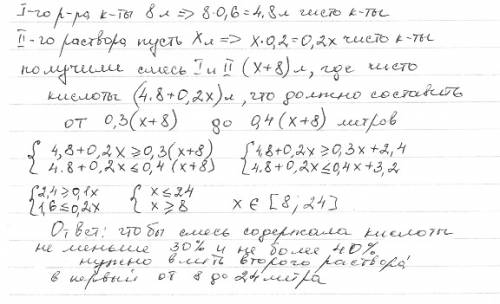 I-го р-ра к-ты 8л => 8·0,6=4,8л чисто к-ты
II-го раствора пусть Xл => x·0,2=0,2x чисто к-ты
получим смесь I и II (x+8)л, где чисто
кислоты (4.8+0,2x)л, что должно составить
от 0,3(x+8) до 0,4(x+8) литров
{ 4,8+0,2x ≥ 0,3(x+8) { 4,8+0,2x ≥ 0,3x+2,4
4.8+0,2x ≤ 0,4(x+8) 4.8+0,2x ≤ 0,4x+3,2
{ 2,4 ≥ 0,1x { x ≤ 24
1,6 ≤ 0,2x x ≥ 8 x ∈ [8;24]
Ответ: чтобы смесь содержала кислоты
не меньше 30% и не более 40%
нужно влить второго раствора
в первый от 8 до 24 литра